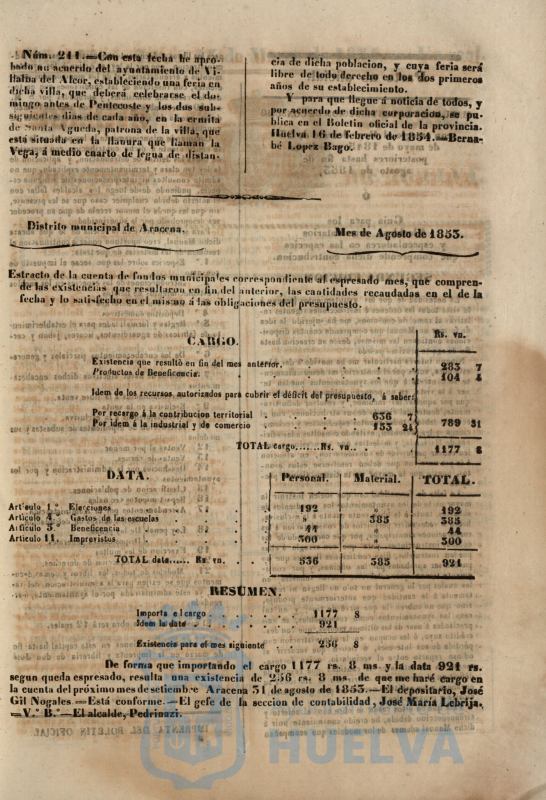 Núm. 211.—Con esta fecha he apro-
bado un acuerdo del ayuntamiento de Vi-
llalba del Alcor, estableciendo una feria en
dicha villa, que deberá celebrarse el do-
mingo antes de Pentecoste y los dos sub-
siguientes dias de cada año, en la ermita
de Santa Agueda, patrona de la villa, que
está situada en la llanura que llaman la
Vega, á medio cuarto de legua de distan-
cia de dicha poblacion, y cuya feria será
libre de todo derecho en los dos primeros
años de su establecimiento.
Y para que llegue á noticia de todos, y
por acuerdo de dicha corporacion, se pu-
blica en el Boletin oficial de la provincia.
Huelva 16 de febrero de 1854.—Berna-
bé Lopez Bago.
Distrito municipal de Aracena.
Mes de Agosto de 1853.
Estracto de la cuenta de fondos municipales correspondiente al espresado mes, que compren-
de las existencias que resultaron en fin del anterior, las cantidades recaudadas en el de la
fecha y lo satisfecho en el mismo á las obligaciones del presupuesto.
CARGO. Rs. vn.
Existencia que resultó en fin del mes anterior. 283 7
Productos de Beneficencia. 104 4
Idem de los recursos autorizados para cubrir el déficit del presupuesto, á saber:
Por recargo á la contribucion territorial 636 7
Por idem á la industrial y de comercio 153 24 789 31
TOTAL cargo......Rs. vn. 1177 8
DATA. Personal. Material. TOTAL.
Artículo 1.º Elecciones 192 » 192
Artículo 4. Gastos de las escuelas » 385 385
Artículo 5. Beneficencia 44 » 44
Artículo 11. Imprevistos 300 » 300
TOTAL data...... Rs. vn. 536 385 921
RESUMEN.
Importa el cargo 1177 8
Idem la data 921
Existencia para el mes siguiente 256 8
De forma que importando el cargo 1177 rs. 8 ms. y la data 921 rs.
segun queda espresado, resulta una existencia de 256 rs. 8 ms. de que me haré cargo en
la cuenta del próximo mes de setiembre Aracena 31 de agosto de 1853.—El depositario, José
Gil Nogales.—Está conforme.—El gefe de la seccion de contabilidad, José María Lebrija.
—V.º B.º—El alcalde, Pedrinazi.
HUELVA